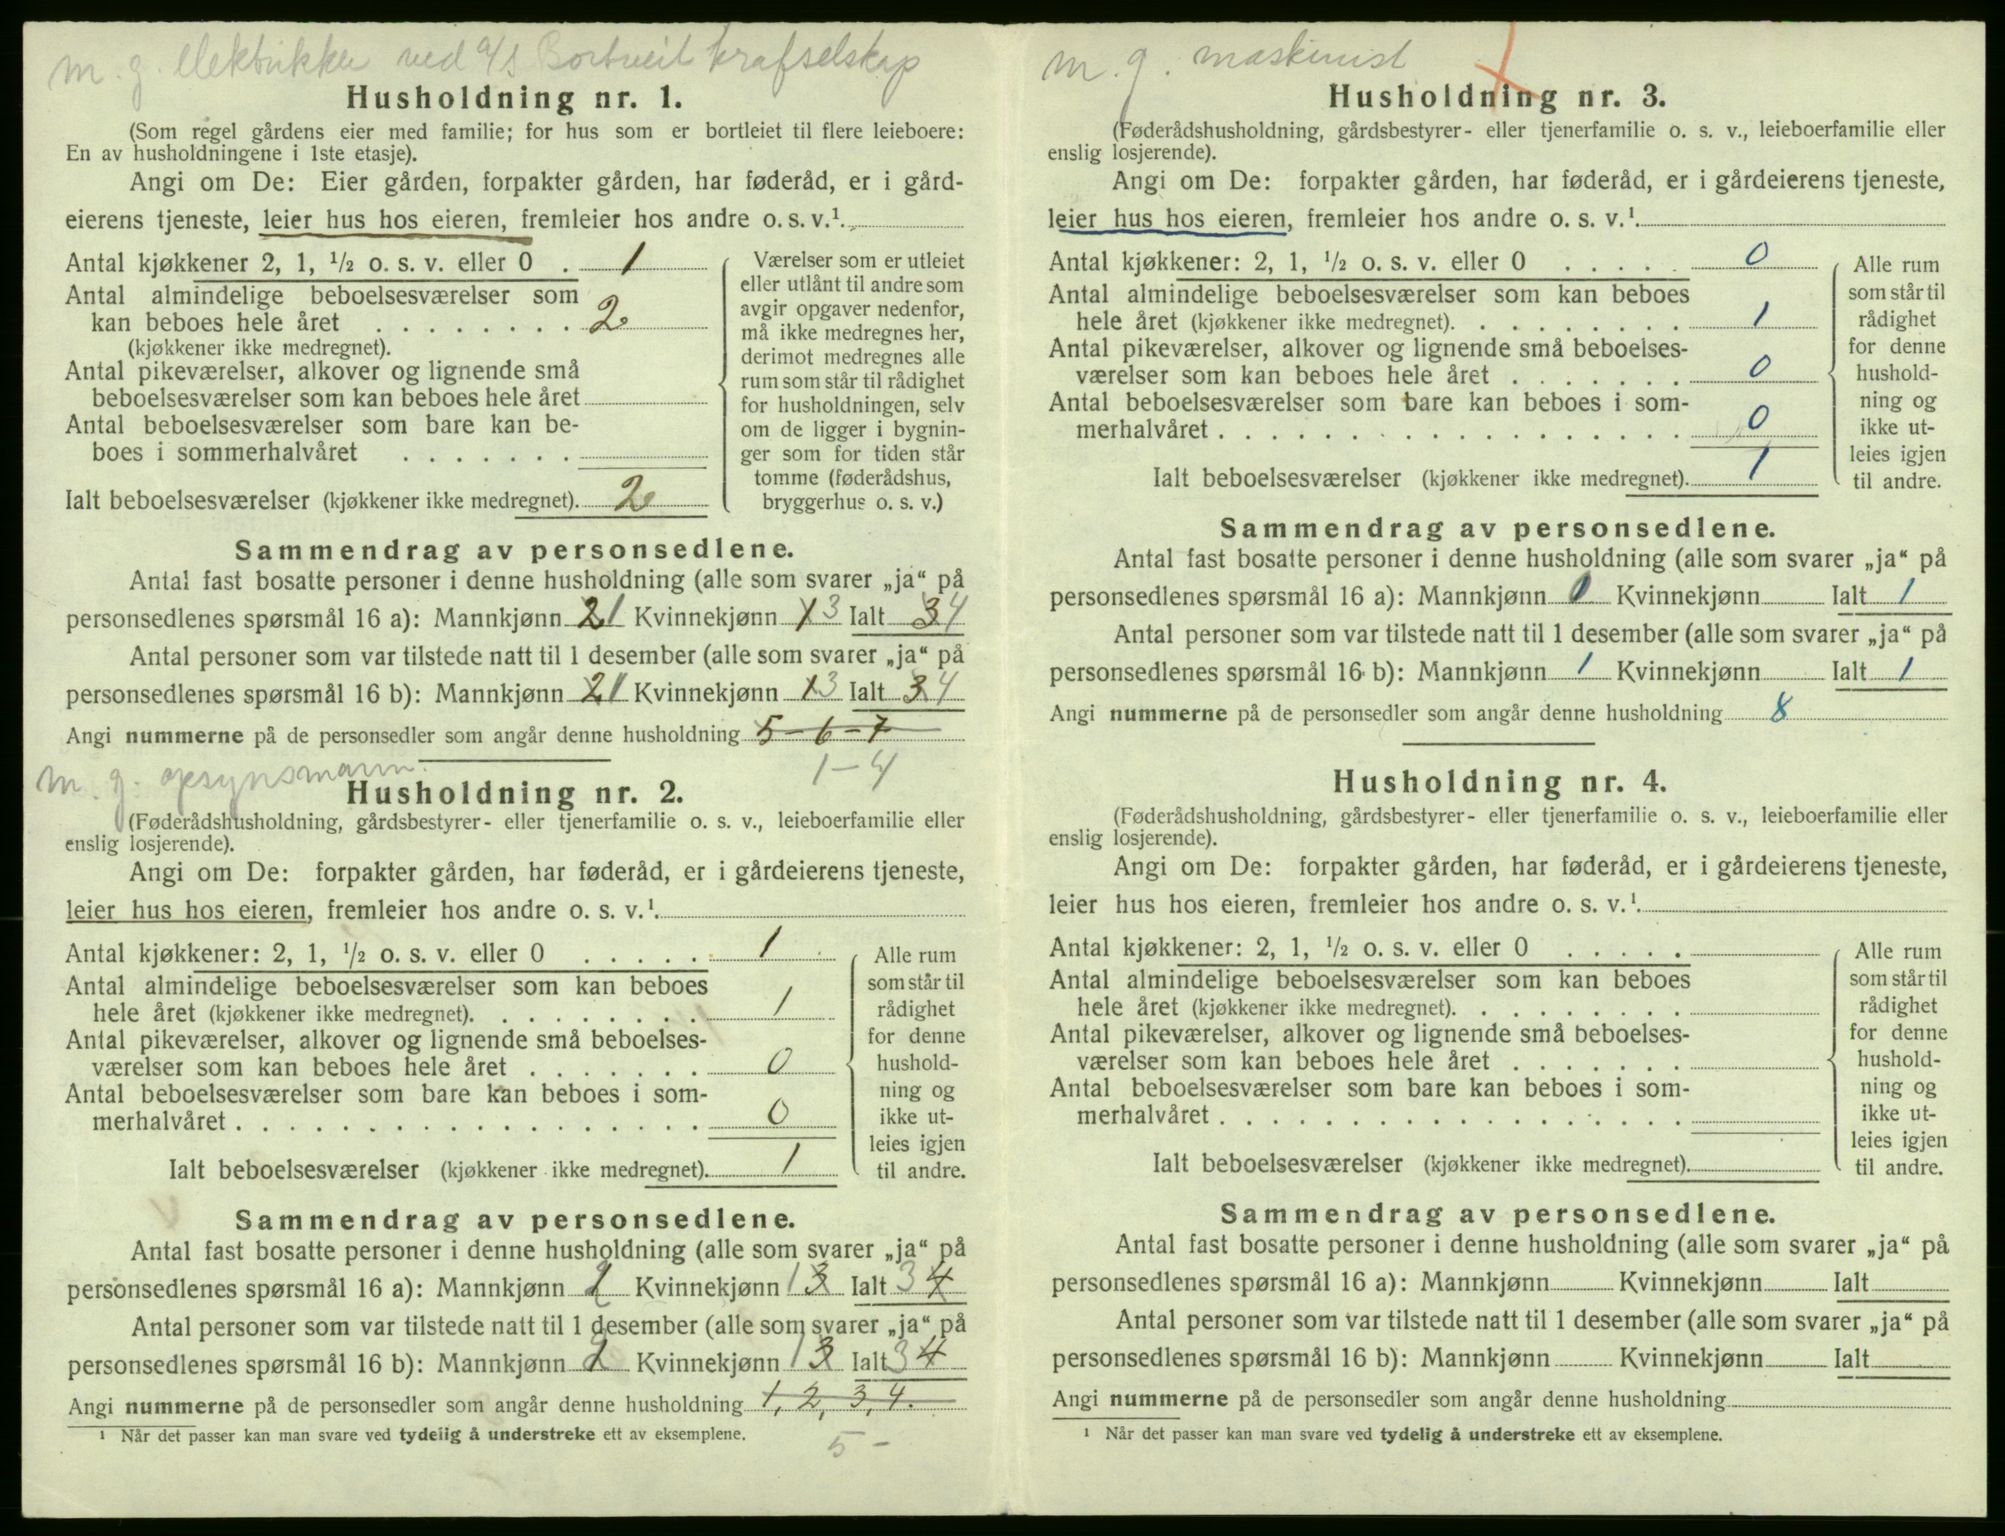 m. g. elektrikker ved A/S Bortveit krafselskap
Husholdning nr. 1.
(Som regel gårdens eier med familie; for hus som er bortleiet til flere leieboere:
En av husholdningene i 1ste etasje).
Angi om De: Eier gården, forpakter gården, har føderåd, er i gård-
eierens tjeneste, leier hus hos eieren, fremleier hos andre o. s. v.¹.
Antal kjøkkener 2, 1, ½ o. s. v. eller 0 . 1
Antal almindelige beboelsesværelser som
kan beboes hele året . . . . . . . . 2
(kjøkkener ikke medregnet).
Antal pikeværelser, alkover og lignende små
beboelsesværelser som kan beboes hele året
Antal beboelsesværelser som bare kan be-
boes i sommerhalvåret . . . . . . .
Ialt beboelsesværelser (kjøkkener ikke medregnet). 2
Værelser som er utleiet
eller utlånt til andre som
avgir opgaver nedenfor,
må ikke medregnes her,
derimot medregnes alle
rum som står til rådighet
for husholdningen, selv
om de ligger i bygnin-
ger som for tiden står
tomme (føderådshus,
bryggerhus o. s. v.)
Sammendrag av personsedlene.
Antal fast bosatte personer i denne husholdning (alle som svarer „ja“ på
personsedlenes spørsmål 16 a): Mannkjønn 2 1 Kvinnekjønn 1 3 Ialt 3 4
Antal personer som var tilstede natt til 1 desember (alle som svarer „ja“ på
personsedlenes spørsmål 16 b): Mannkjønn 2 1 Kvinnekjønn 1 3 Ialt 3 4
Angi nummerne på de personsedler som angår denne husholdning 5 - 6 - 7
1 - 4
m. g. opsynsmann.
Husholdning nr. 2.
(Føderådshusholdning, gårdsbestyrer- eller tjenerfamilie o. s. v., leieboerfamilie eller
enslig losjerende).
Angi om De: forpakter gården, har føderåd, er i gårdeierens tjeneste,
leier hus hos eieren, fremleier hos andre o. s. v.¹.
Antal kjøkkener: 2, 1, ½ o. s. v. eller 0 . . . . . 1
Antal almindelige beboelsesværelser som kan beboes
hele året (kjøkkener ikke medregnet). . . . . . . . . 1
Antal pikeværelser, alkover og lignende små beboelses-
værelser som kan beboes hele året . . . . . . . 0
Antal beboelsesværelser som bare kan beboes i som-
merhalvåret . . . . . . . . . . . . . . . . . . 0
Ialt beboelsesværelser (kjøkkener ikke medregnet). 1
Alle rum
som står til
rådighet
for denne
hushold-
ning og
ikke ut-
leies igjen
til andre.
Sammendrag av personsedlene.
Antal fast bosatte personer i denne husholdning (alle som svarer „ja“ på
personsedlenes spørsmål 16 a): Mannkjønn 2 Kvinnekjønn 1 3 Ialt 3 4
Antal personer som var tilstede natt til 1 desember (alle som svarer „ja“ på
personsedlenes spørsmål 16 b): Mannkjønn 2 Kvinnekjønn 1 3 Ialt 3 4
Angi nummerne på de personsedler som angår denne husholdning 1, 2, 3, 4.
¹ Når det passer kan man svare ved tydelig å understreke ett av eksemplene.
5 -
m. g. maskinist
Husholdning nr. 3.
(Føderådshusholdning, gårdsbestyrer- eller tjenerfamilie o. s. v., leieboerfamilie eller
enslig losjerende).
Angi om De: forpakter gården, har føderåd, er i gårdeierens tjeneste,
leier hus hos eieren, fremleier hos andre o. s. v.¹.
Antal kjøkkener: 2, 1, ½ o. s. v. eller 0 . . . . . 0
Antal almindelige beboelsesværelser som kan beboes
hele året (kjøkkener ikke medregnet). . . . . . . . . 1
Antal pikeværelser, alkover og lignende små beboelses-
værelser som kan beboes hele året . . . . . . . 0
Antal beboelsesværelser som bare kan beboes i som-
merhalvåret . . . . . . . . . . . . . . . . . . 0
Ialt beboelsesværelser (kjøkkener ikke medregnet). 1
Alle rum
som står til
rådighet
for denne
hushold-
ning og
ikke ut-
leies igjen
til andre.
Sammendrag av personsedlene.
Antal fast bosatte personer i denne husholdning (alle som svarer „ja“ på
personsedlenes spørsmål 16 a): Mannkjønn 1 Kvinnekjønn Ialt 1
Antal personer som var tilstede natt til 1 desember (alle som svarer „ja“ på
personsedlenes spørsmål 16 b): Mannkjønn 1 Kvinnekjønn Ialt 1
Angi nummerne på de personsedler som angår denne husholdning 8
Husholdning nr. 4.
(Føderådshusholdning, gårdsbestyrer- eller tjenerfamilie o. s. v., leieboerfamilie eller
enslig losjerende).
Angi om De: forpakter gården, har føderåd, er i gårdeierens tjeneste,
leier hus hos eieren, fremleier hos andre o. s. v.¹.
Antal kjøkkener: 2, 1, ½ o. s. v. eller 0 . . . . .
Antal almindelige beboelsesværelser som kan beboes
hele året (kjøkkener ikke medregnet). . . . . . . . .
Antal pikeværelser, alkover og lignende små beboelses-
værelser som kan beboes hele året . . . . . . .
Antal beboelsesværelser som bare kan beboes i som-
merhalvåret . . . . . . . . . . . . . . . . . .
Ialt beboelsesværelser (kjøkkener ikke medregnet).
Alle rum
som står til
rådighet
for denne
hushold-
ning og
ikke ut-
leies igjen
til andre.
Sammendrag av personsedlene.
Antal fast bosatte personer i denne husholdning (alle som svarer „ja“ på
personsedlenes spørsmål 16 a): Mannkjønn Kvinnekjønn Ialt
Antal personer som var tilstede natt til 1 desember (alle som svarer „ja“ på
personsedlenes spørsmål 16 b): Mannkjønn Kvinnekjønn Ialt
Angi nummerne på de personsedler som angår denne husholdning
¹ Når det passer kan man svare ved tydelig å understreke ett av eksemplene.